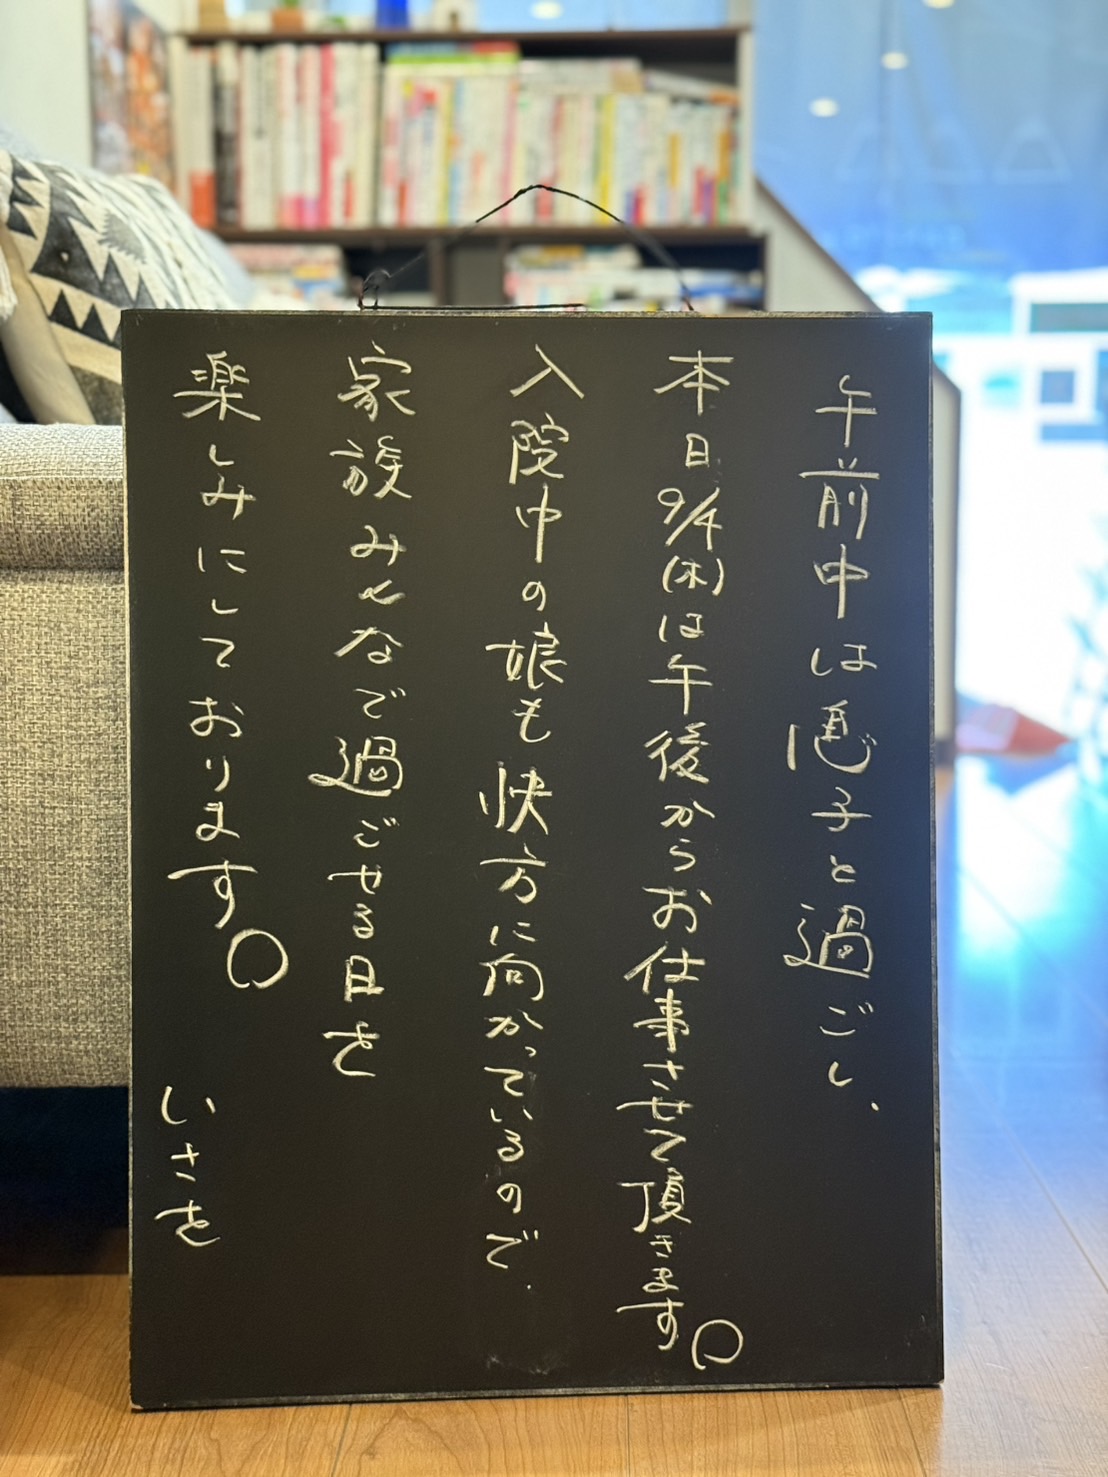 午前中は息子と過ごし、
本日9/4(木)は午後からお仕事させて頂きます。
入院中の娘も快方に向かっているので、
家族みんなで過ごせる日を
楽しみにしております。
いさを